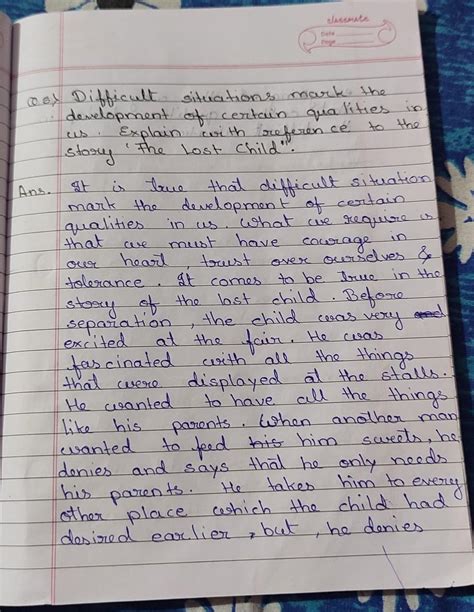 classmate
Date
Page
Q.6) Difficult situations mark the
development of certain qualities in
us. Explain with reference to the
story "The Lost Child".
Ans. It is true that difficult situation
mark the development of certain
qualities in us. What we require is
that we must have courage in
our heart trust over ourselves &
tolerance. It comes to be true in the
story of the lost child. Before
separation, the child was very
excited at the fair. He was
fascinated with all the things
that were displayed at the stalls.
He wanted to have all the things
like his parents. When another man
wanted to feed his him sweets, he
denies and says that he only needs
his parents. He takes him to every
other place which the child had
desired earlier, but, he denies